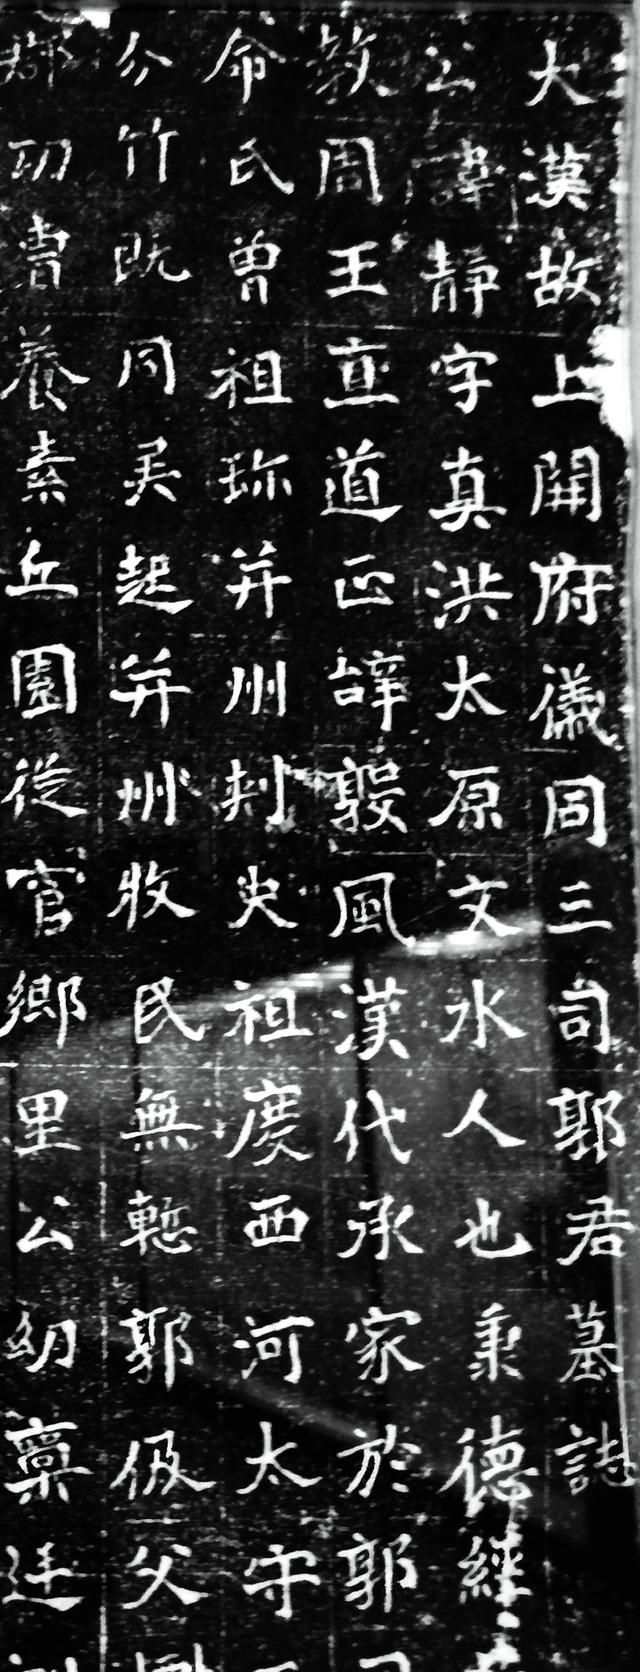 大漢故上開府儀同三司郭君墓誌
公諱靜字真洪太原文水人也秉德經
教周王直道正辭毀風漢代承家於郭
命氏曽祖珎并州刺史祖慶西河太守
分竹既同吴起并州牧民無慙郭伋父
郡功曺養素丘園從宦鄉里公幼稟廷